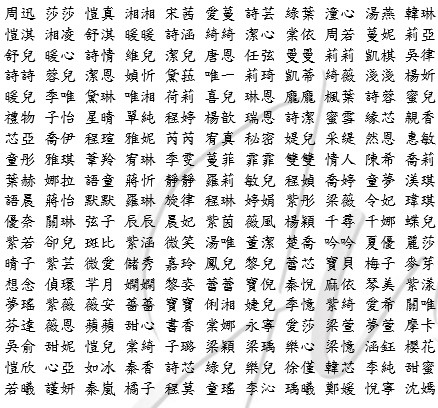 周迅 莎莎 愷真 湘湘 宋茜 愛蔓 詩芸 綠葉 潼心 湯燕 韓琳
愷淇 湘凌 舒淇 暖暖 詩涵 綺綺 潔心 棠依 周若 蔓妮 莉亞
舒兒 暖心 詩情 維兒 潔兒 唐恩 任弦 曼曼 莉莉 凱棋 吳律
詩詩 蓉兒 潔恩 媜忻 黛菈 唯一 莉琦 凱蒂 綺薇 淺淺 楊妡
暖兒 季唯 黛琳 唯湘 荷莉 喜兒 琳恩 龐龐 楓葉 詩蓉 蜜兒
禮物 子怡 星晴 單純 程婷 楊歆 瑞恩 詩潔 蜜雪 緣芯 親香
芯亞 喬伊 程瑄 雅妮 芮芮 宥真 秘密 媞兒 采緹 然恩 惠敏
童彤 雅琪 葦羚 宥琳 季雯 蔓菲 霏霏 雙雙 情人 陳希 喬莉
葉赫 娜拉 語童 蔣忻 靜靜 羅莉 敏兒 程媜 喬婷 童夢 淇琪
語晨 蔣怡 默默 羅琳 旋律 程琳 婷娟 紫彤 梁薇 令妃 瑋琪
優奈 關琳 弦子 辰辰 晨妃 紫茵 薇風 楊穎 千尋 千娜 蝶兒
紫若 卻兒 斑比 紫涵 微笑 湯唯 董潔 楚喬 吟吟 夏優 麗莎
晴子 紫芸 微愛 儲秀 嘉玲 鳳兒 黎兒 蕾芯 寶貝 梅子 麥芽
想念 偵環 芊月 嫻嫻 黎姿 蕾蕾 寶倪 秦悅 麻依 琴美 紫漾
夢瑤 紫薇 薇安 薔薔 寶寶 俐湘 婕兒 李憶 紫綺 愛希 摩卡
芬達 薇恩 蘋蘋 甜心 書香 棠娜 永寧 愛莎 梁萱 夢萱 關關
吳俞 甜妮 愷兒 棠綺 子璐 梁穎 梁瑀 樂心 梁憶 涵鈺 櫻花
愷欣 心亞 如冰 秦香 詩芯 綠兒 樂兒 徐僅 韓芯 李純 甜蜜
若曦 謹妍 秦嵐 橘子 程莫 童瑤 李沁 瑀曦 鄭媛 悅寧 沈嫣